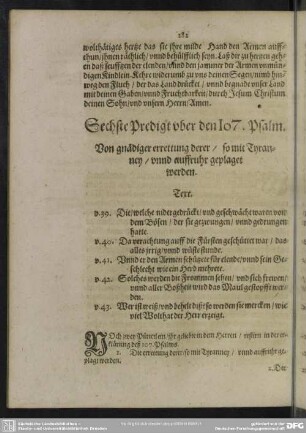 182
wolthätiges hertze das sie ihre milde Hand den Armen auff-
thun/ ihnen räthlich/ vnd behülfflich seyn. Laß dir zu hertzen gehen
daß seufftzen der elenden/ vnnd den jammer der Armen vnmün-
digen Kindlein. Kehre wider vmb zu vns deinen Segen/ nimb hin-
weg den Fluch/ der das Land drücket/ vnd begnade unser Land
mit deinen Gaben/ vnnd Fruchtbarkeit/ durch Jesum Christum
deinen Sohn/ vnd vnsern Herrn/ Amen.
Sechste Predigt vber den 107. Psalm.
Von gnädiger errettung derer/ so mit Tyran-
ney/ vnnd auffruhr geplaget
werden.
Text.
v.39. Die/ welche nidergedrückt/ vnd geschwächt waren von
dem Bösen/ der sie gezwungen/ vnnd gedrungen
hatte.
v.40. Da verachtung auff die Fürsten geschüttet war/ das
alles irrig/ vnnd wüste stunde.
v.41. Vnnd er den Armen schützete für elende/ vnnd sein Ge-
schlecht wie ein Herd mehrete.
v.42. Solches werden die Frommen sehen/ vnd sich frewen/
vnnd aller Boßheit wird das Maul gestopfft wer-
den.
v.43. Wer ist weiß/ vnd behelt diß? so werden sie mercken/ wie
viel Wolthat der Herr erzeigt.
NOch zwey Pünctlein/ Ihr geliebten dem Herren/ restiren in der er-
klärung deß 107. Psalms.
1. Die errettung derer/ so mit Tyranney/ vnnd auffruhr ge-
plaget werden.
2. Die